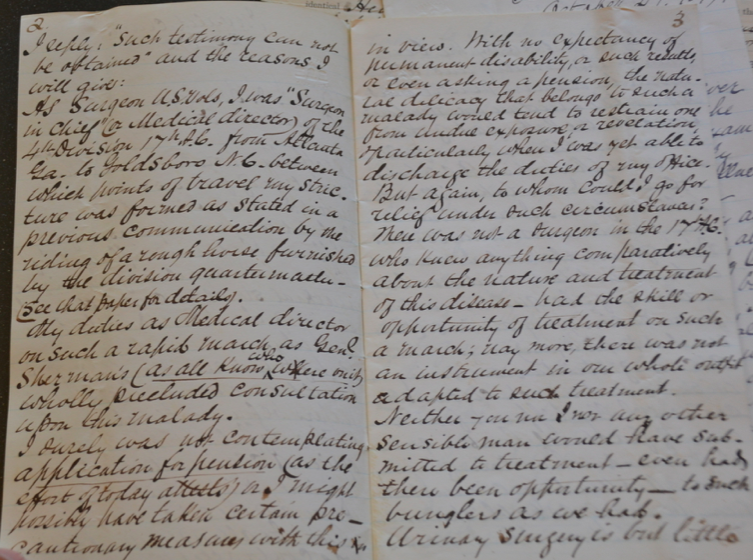 2
I reply: "Such testimony can not
be obtained" and the reasons I
will give:
As Surgeon U.S. Vols, I was "Surgeon
in chief" (or Medical director) of the
4th Division 17th A.C. from Atlanta
Ga. to Goldsboro N.C. between
which points of travel my stric-
ture was formed as stated in a
previous communication by me
riding of a rough horse furnished
by the division quartermaster-
(See that paper for details).
My duties as Medical director
on such a rapid march, as Genl
Sherman's (as all know who were on it)
wholly precluded consultation
upon this malady.
I surely was not contemplating
application for pension (as the
effort of today attests) or I might
possibly have taken certain pre-
cautionary measures with this
3
in view. With no expectancy of
permanent disability, or such results,
or even asking a pension, the natu-
ral delicacy that belongs to such a
malady would tend to restrain one
from undue exposure, or revelation,
particularly when I was yet able to
discharge the duties of my office.
But again, to whom could I go for
relief under such circumstances?
There was not a Surgeon in the 17th A.C.
who knew anything comparatively
about the nature and treatment
of this disease - had the skill or
opportunity of treatment on such
a march; nay more, there was not
an instrument in our whole outfit
adapted to such treatment.
Neither you nor I nor any other
sensible man would have sub-
mitted to treatment - even had
there been opportunity - to such
bunglers as we had.
Urinary Surgery is but little